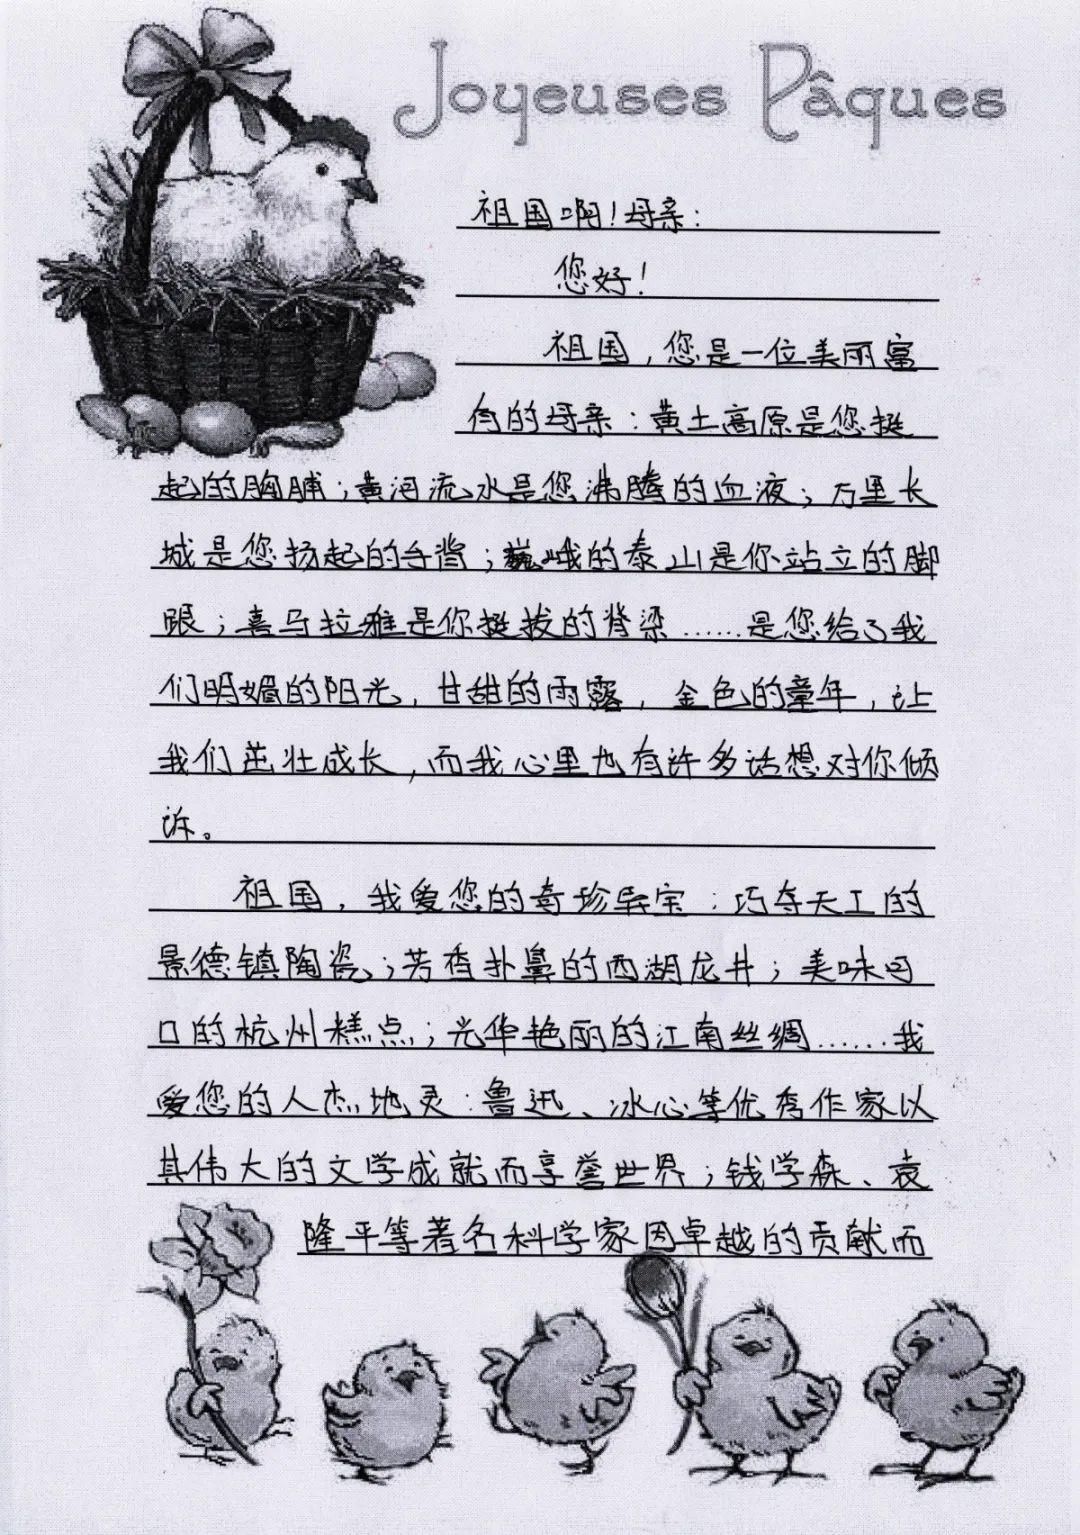 Joyeuses Pâques
祖国啊!母亲:
您好!
祖国,您是一位美丽富
有的母亲:黄土高原是您挺
起的胸脯;黄河流水是您沸腾的血液;万里长
城是您扬起的手臂;巍峨的泰山是你站立的脚
跟;喜马拉雅是你挺拔的脊梁……是您给了我
们明媚的阳光,甘甜的雨露,金色的童年,让
我们茁壮成长,而我心里也有许多话想对你倾
诉。
祖国,我爱您的奇珍异宝:巧夺天工的
景德镇陶瓷;芳香扑鼻的西湖龙井;美味可
口的杭州糕点;光华艳丽的江南丝绸……我
爱您的人杰地灵:鲁迅、冰心等优秀作家以
其伟大的文学成就而享誉世界;钱学森、袁
隆平等著名科学家因卓越的贡献而